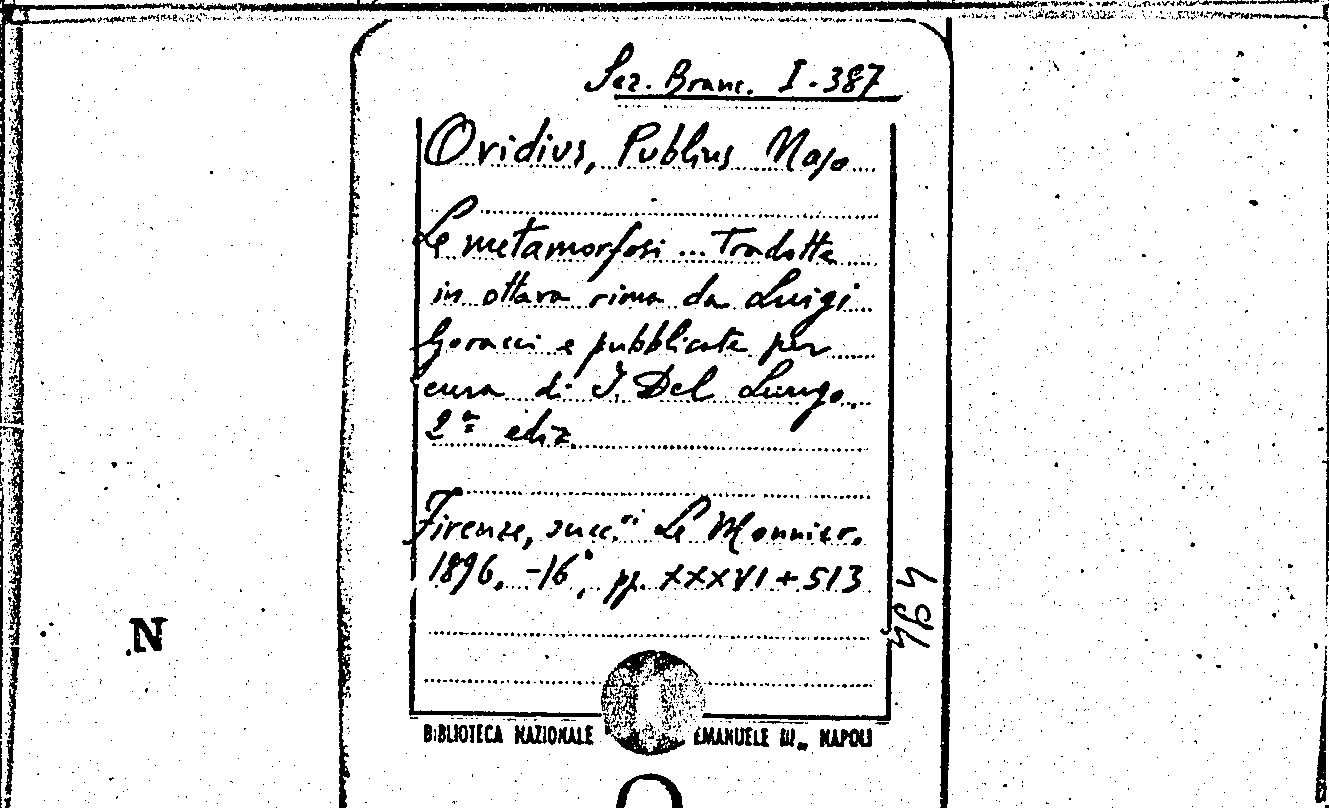 Sez. Branc. I. 387
Ovidius, Publius Naso
Le metamorfosi ... Tradotte
in ottava rima da Luigi
Goracci e pubblicate per
cura di I. Del Lungo.
2ª ediz.
Firenze, succ.ri Le Monnier.
1896. -16°, pp. XXXVI + 513
N
BIBLIOTECA NAZIONALE EMANUELE III NAPOLI
O